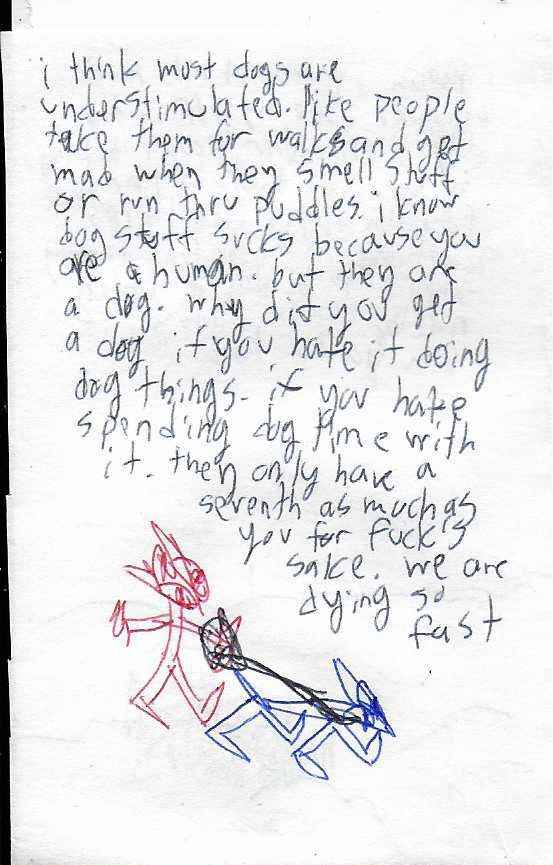 i think most dogs are
understimulated. like people
take them for walks and get
mad when they smell stuff
or run thru puddles. i know
dog stuff sucks because you
are a human. but they are
a dog. why did you get
a dog if you hate it doing
dog things. if you hate
spending dog time with
it. they only have a
seventh as much as
you for fuck's
sake. we are
dying so
fast